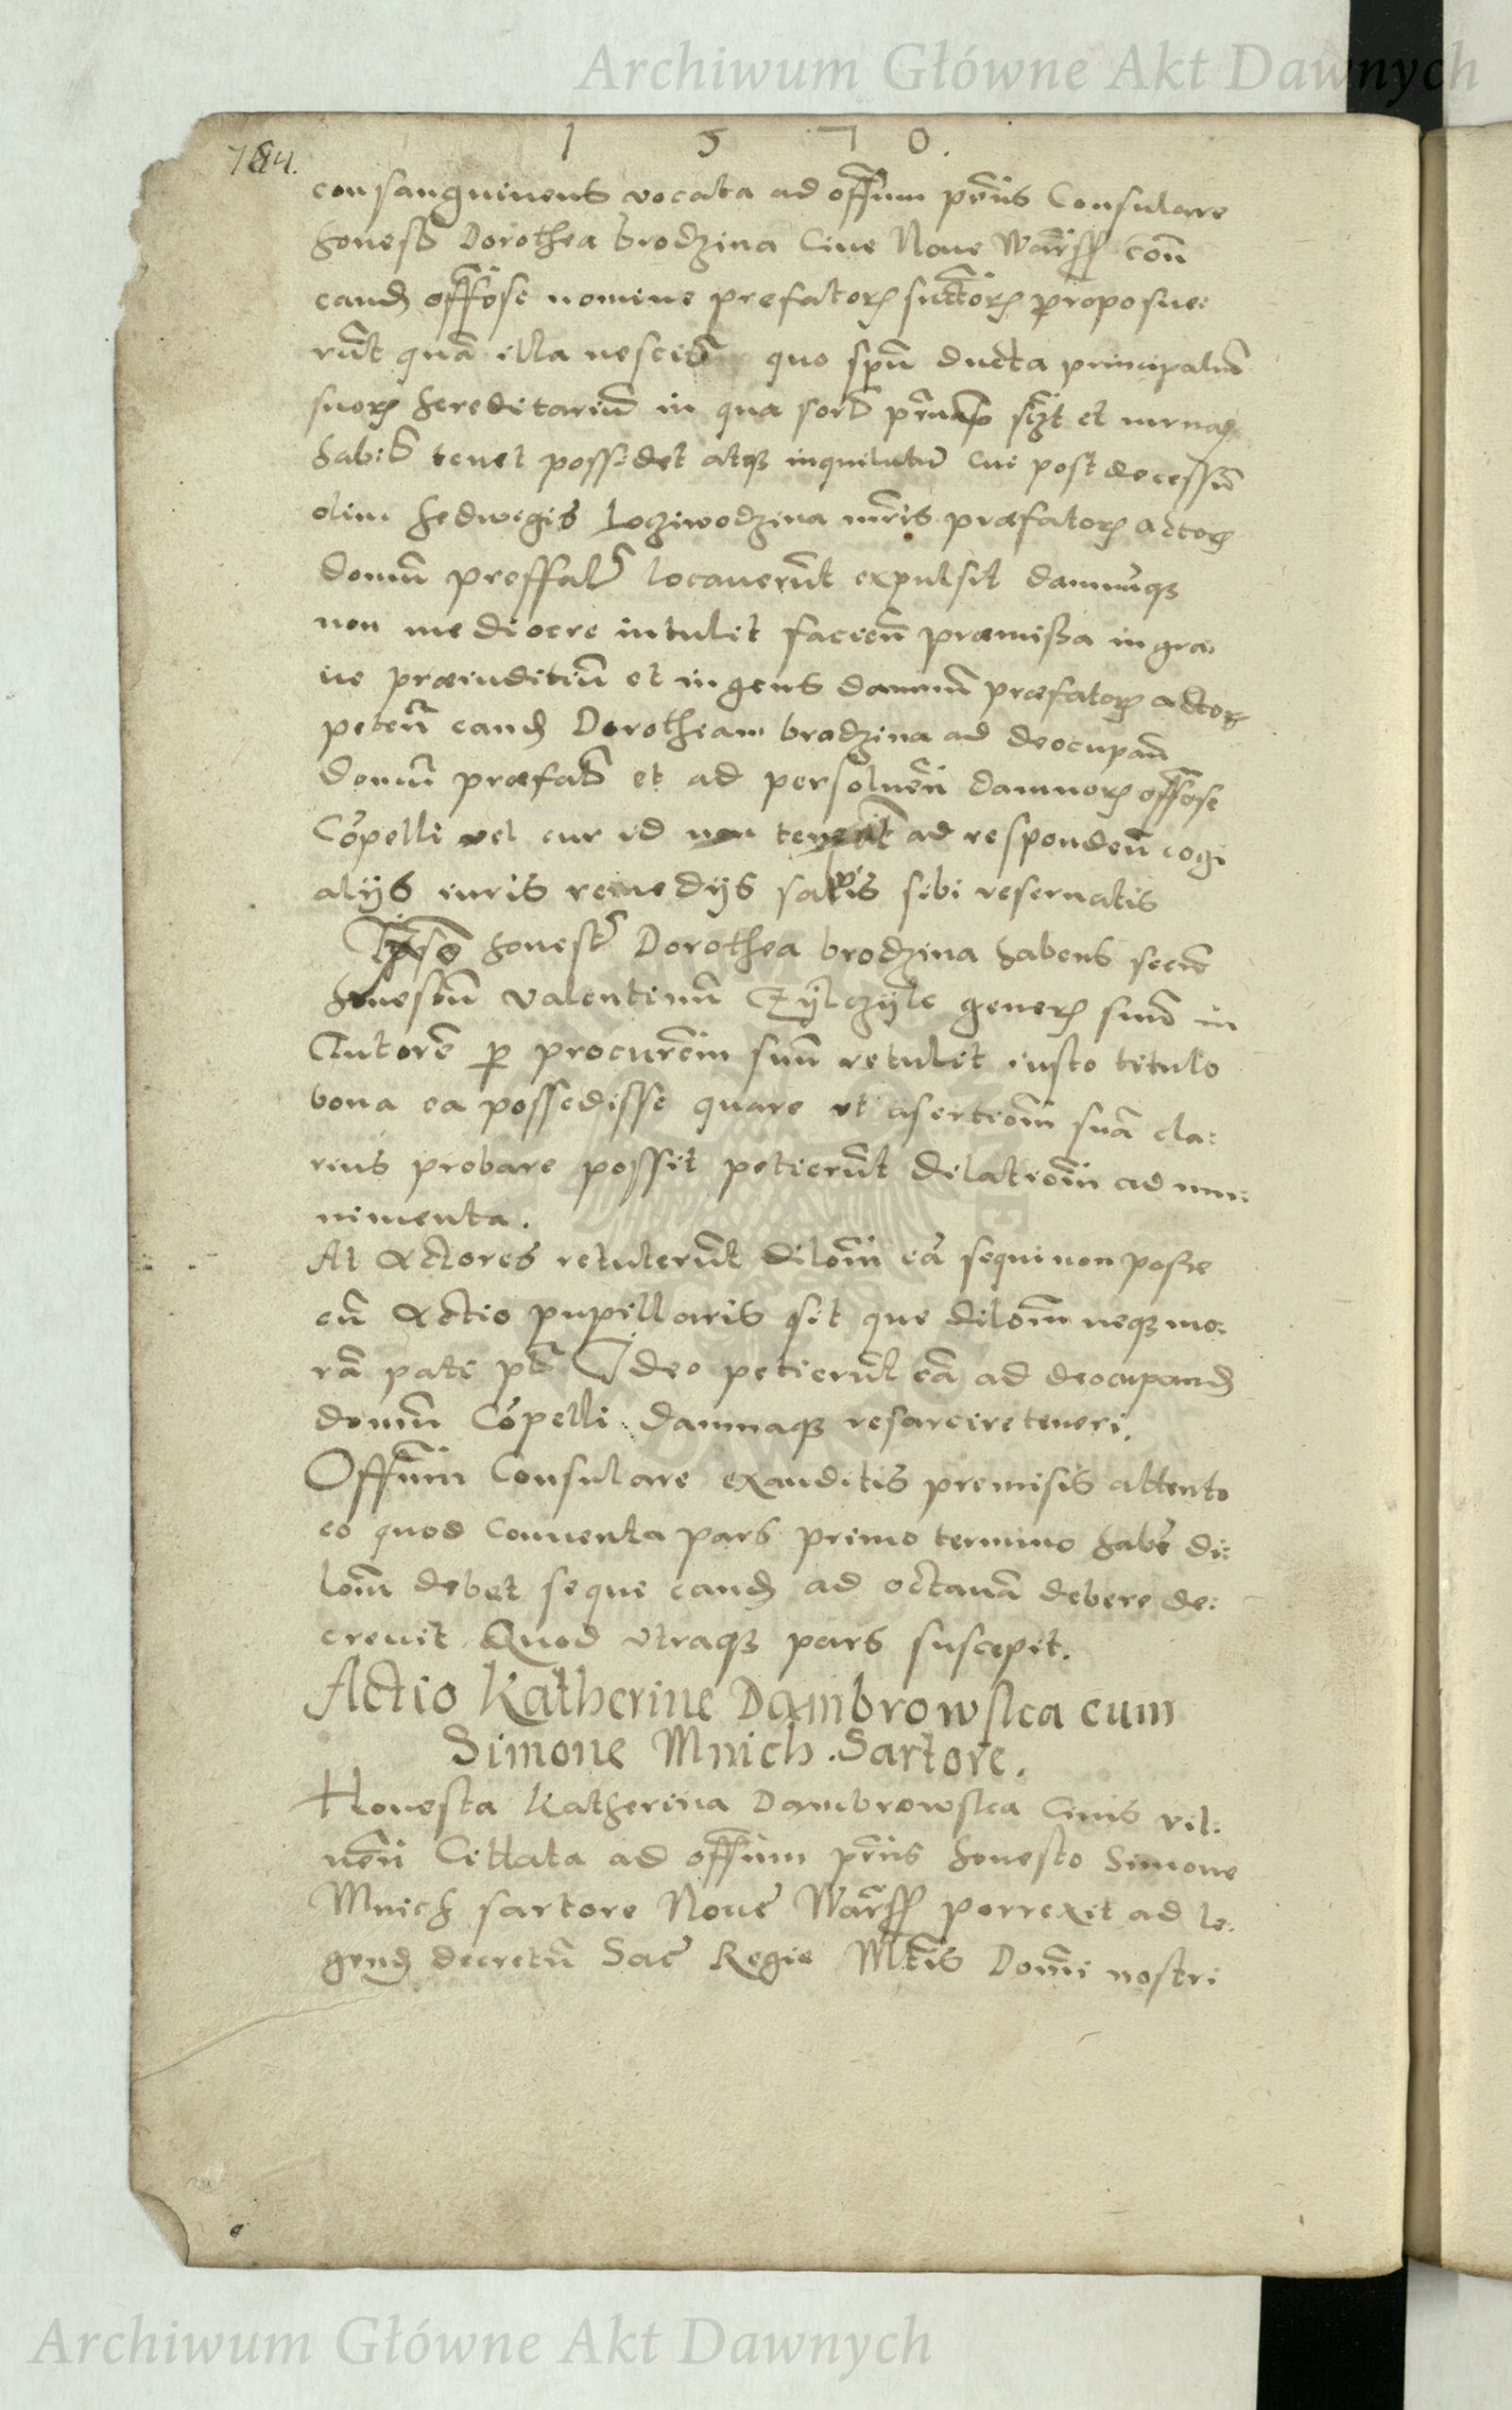 Archiwum Główne Akt Dawnych
1 5 7 0.
784.
consanguineus vocata ad offium pñs Consulare
honesta Dorothea brodzina Ciue Noue Warss coñ
eand offiose nomine prefatorum suctorum proposue:
rũt quã illa nescitur quo spũ ducta principaliũ
suorum hereditariũ in qua sort
habit tenet possidet atqз inquilatur cui post decessũ
olim hedwegis Locziwodzina mris præfatorum actorum
domũ preffate locauerũt expulsit damnũqз
non mediocre intulit facieñ præmissa in gra:
ue præiuditiũ et ingens damnũ præfatorum actorum
peteñ eand Dorotheam brodzina ad deocupañ
domũ præfat et ad persolueñ damnorum offiose
Cõpelli vel cur id non teneat ad respondeñ cogi
alijs iuris remedijs saluis sibi reseruatis
Ipsa honesta Dorothea brodzina habens secũ
honestũ valentinũ generum suũ in
Autorẽ p procurem suũ retulit iusto titulo
bona ea possedisse quare vt asertiom suã cla:
rius probare possit petierũt dilatiom ad mu:
nimenta.
At Actores retulerũt dilom eã sequi non posse
cũ Actio pupillaris sit que dilom neqз mo:
rã pati pt Ideo petierũt eã ad deocupand
domũ Cõpelli damnaqз resarcire teneri.
Offium Consulare exauditis premisis attento
eo quod Conuenta pars primo termino habe di:
lom debet sequi eand ad octauã debere de:
creuit Quod vtraqз pars suscepit.
Actio Katherine Dambrowska cum
Simone Mnich. Sartore.
Honesta Katherina Dambrowska Ciuis vil:
neñ Cittata ad offium pñs honesto Simone
Mnich sartore Noue Warss porrexit ad le:
gend decretũ Sace Regie Mtis Domi nostri
Archiwum Główne Akt Dawnych